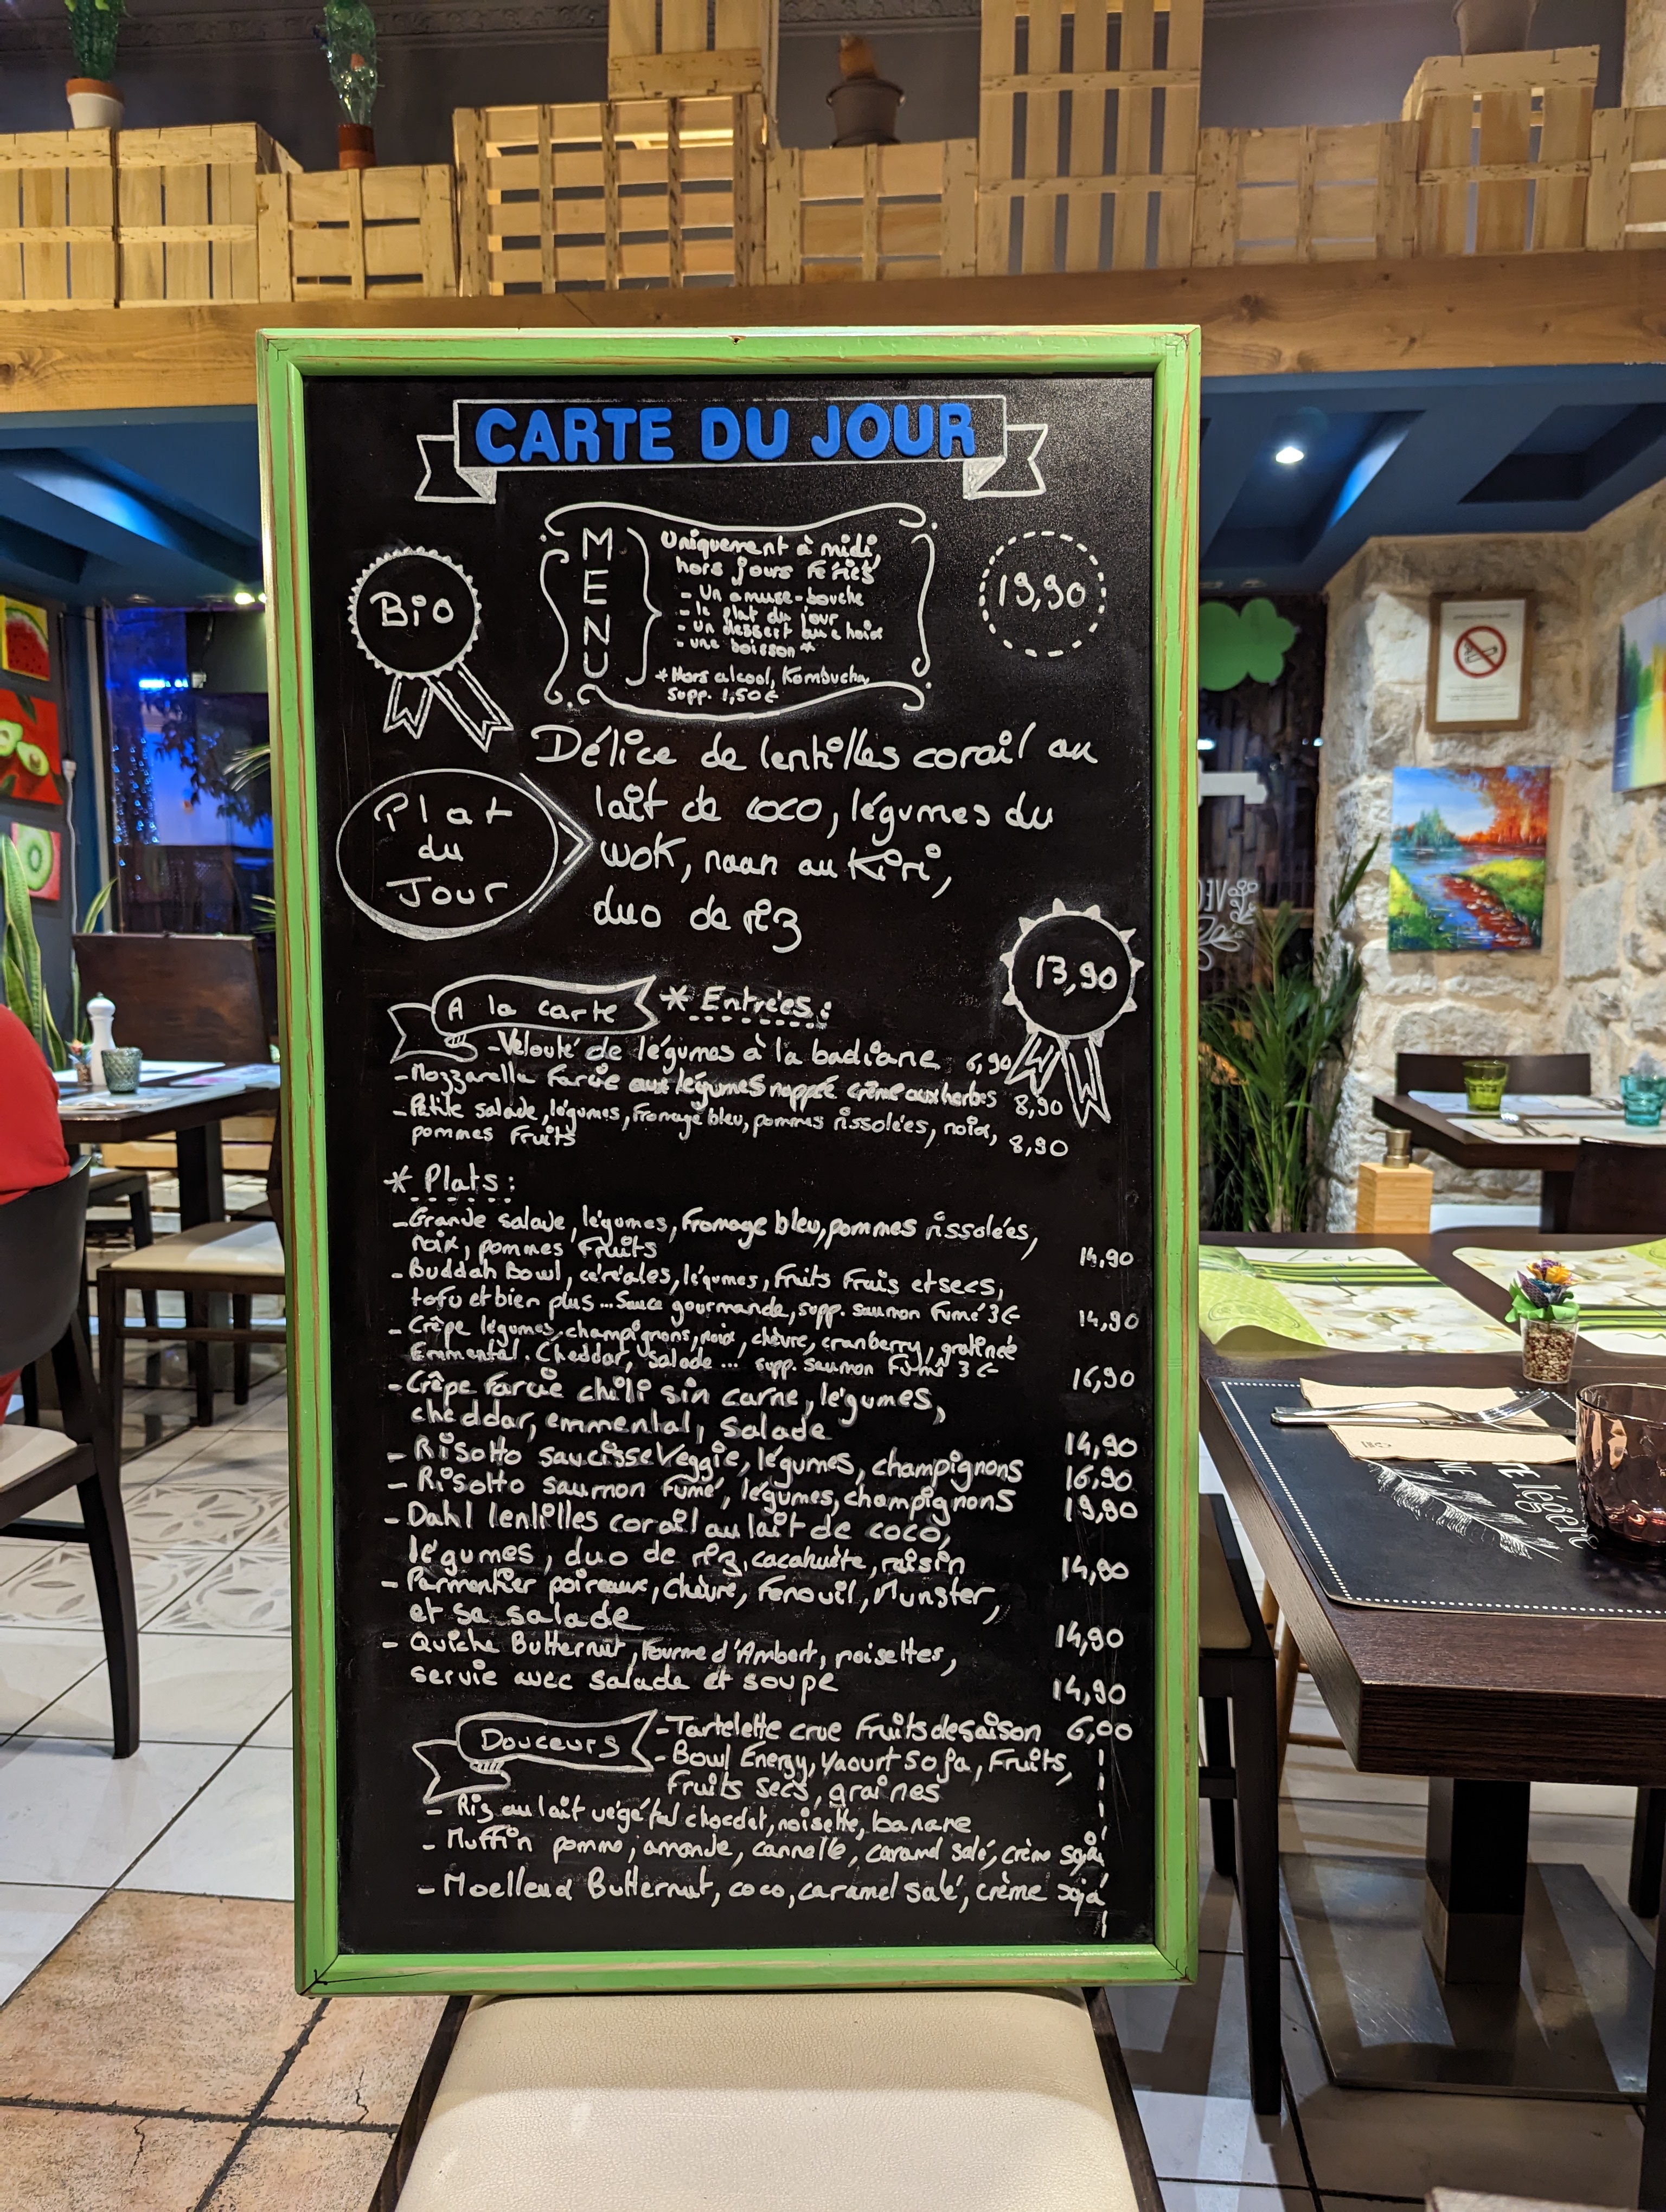 CARTE DU JOUR
Bio
MENU
Uniquement à midi,
hors jours Fériés
- Un amuse-bouche
- le plat du jour
- un dessert au choix
- une boisson *
* Hors alcool, Kombucha,
supp. 1,50€
19,90
Plat
du
Jour
Délice de lentilles corail au
lait de coco, légumes du
wok, naan au Kiri,
duo de riz
13,90
A la carte
* Entrées:
- Velouté de légumes à la badiane 6,90
- Mozzarella Farcie aux légumes nappée crème aux herbes 8,90
- Petite salade, légumes, Fromage bleu, pommes rissolées, noix,
pommes Fruits 8,90
* Plats:
- Grande salade, légumes, Fromage bleu, pommes rissolées,
noix, pommes Fruits 14,90
- Buddah Bowl, céréales, légumes, Fruits Frais et secs,
tofu et bien plus... Sauce gourmande, supp. saumon Fumé 3€ 14,90
- Crêpe légumes, champignons, noix, chèvre, cranberry, gratinée
Emmental, Cheddar, salade... supp. saumon Fumé 3€ 16,90
- Crêpe Farcie chili sin carne, légumes,
cheddar, emmental, salade 14,90
- Risotto saucisse Veggie, légumes, champignons 16,90
- Risotto saumon Fumé, légumes, champignons 19,90
- Dahl lentilles corail au lait de coco,
légumes, duo de riz, cacahuète, raisin 14,90
- Parmentier poireaux, Chèvre, Fenouil, Munster,
et sa salade 14,90
- Quiche Butternut, Fourme d'Ambert, noisettes,
servie avec salade et soupe 14,90
Douceurs
- Tartelette crue Fruits de saison 6,00
- Bowl Energy, Yaourt Soja, Fruits,
Fruits secs, graines
- Riz au lait végétal chocolat, noisette, banane
- Muffin pomme, amande, cannelle, caramel salé, crème soja
- Moelleux Butternut, coco, caramel salé, crème soja
légère